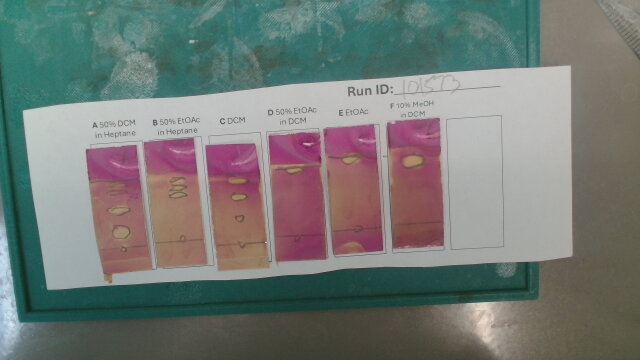 Run ID:
A 50% DCM
in Heptane
B 50% EtOAc
in Heptane
C DCM
D 50% EtOAc
in DCM
E EtOAc
F 10% MeOH
in DCM